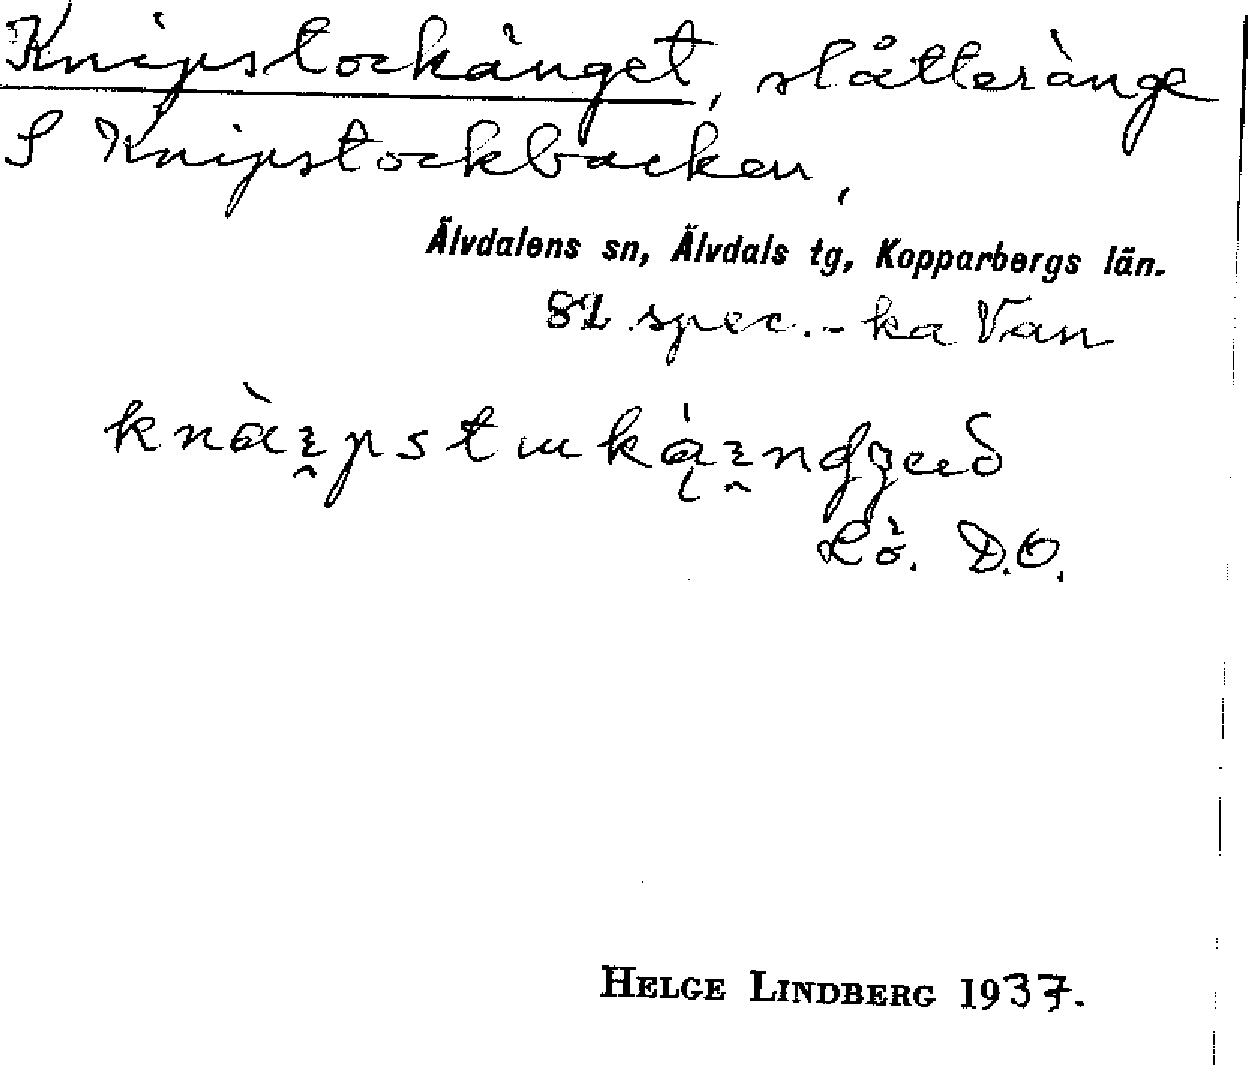 Knipstockänget, slåtteränge
S Knipstockbacken,
Älvdalens sn, Älvdals tg, Kopparbergs län.
82 spec. - ka Van
Lö. D.O.
HELGE LINDBERG 1937.